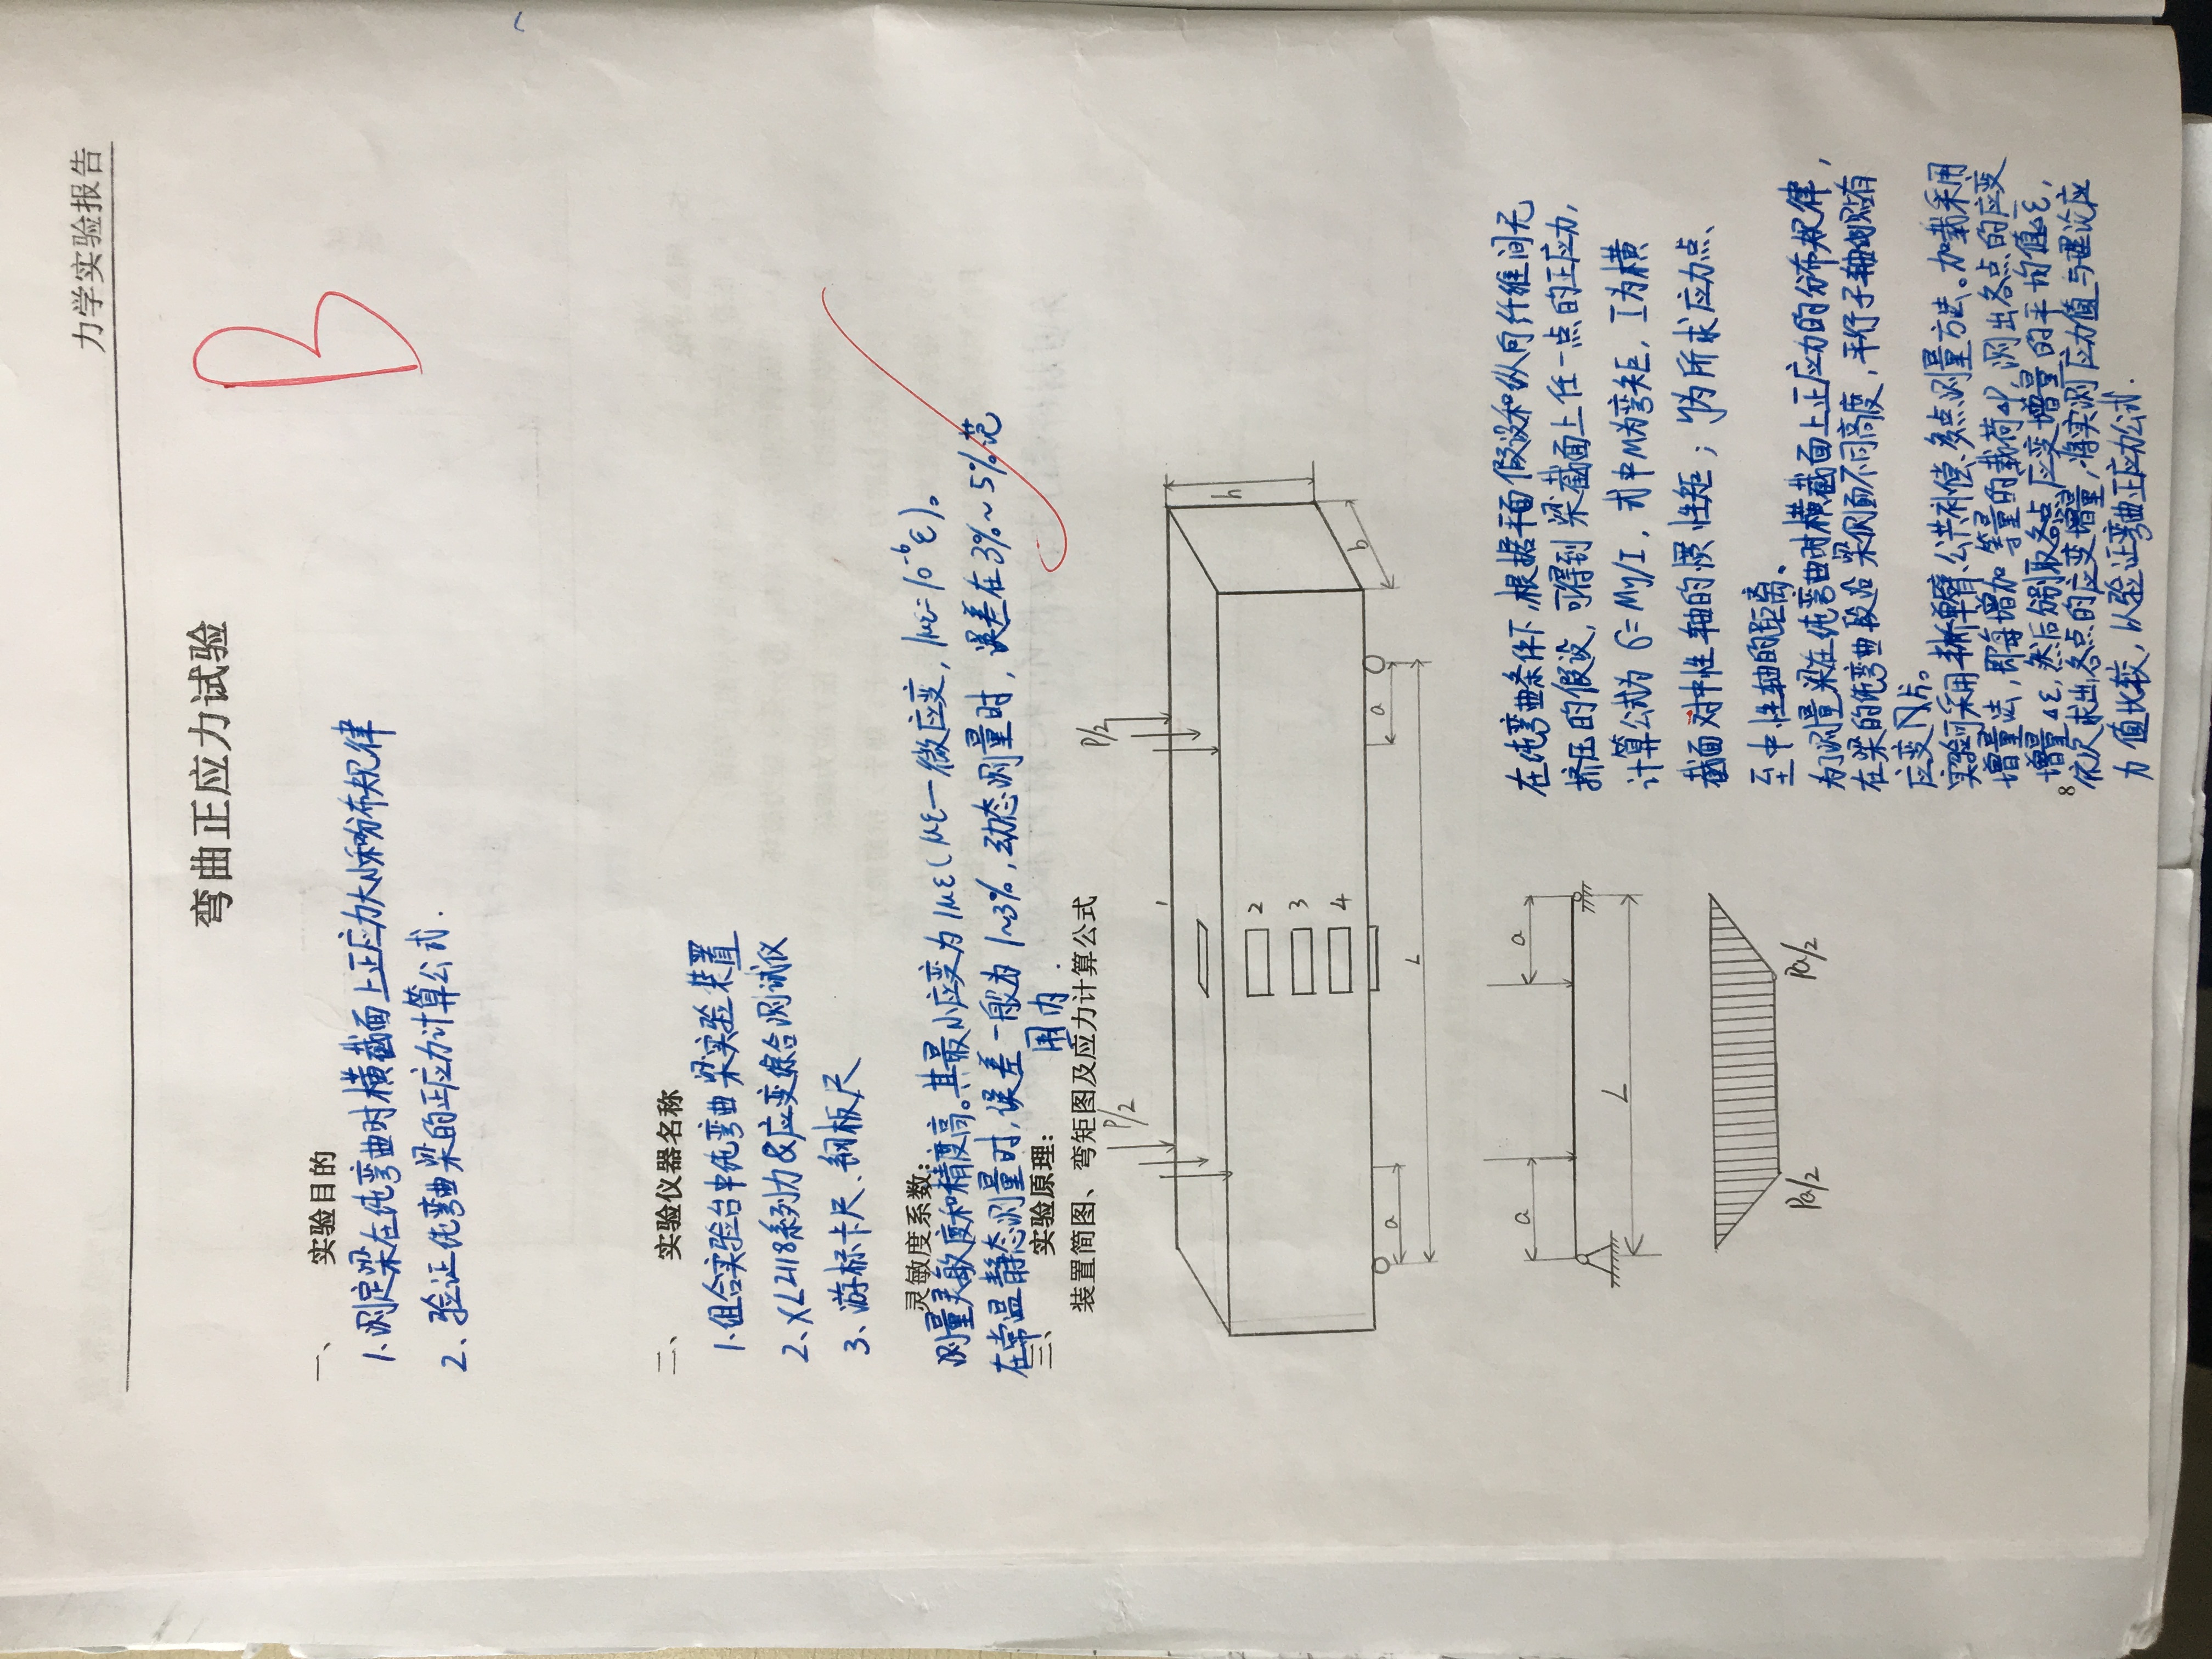 力学实验报告
B
弯曲正应力试验
一、 实验目的
1、测定梁在纯弯曲时横截面上正应力大小和分布规律
2、验证纯弯曲梁的正应力计算公式.
二、 实验仪器名称
1、组合实验台中纯弯曲梁实验装置
2、XL2118系列力&应变综合测试仪
3、游标卡尺、钢板尺
灵敏度系数:
测量灵敏度和精度高。其最小应变为1με(με—微应变, 1με=10⁻⁶ε)。
在常温静态测量时,误差一般为1~3%,动态测量时,误差在3%~5%范
围内.
三、 实验原理:
装置简图、弯矩图及应力计算公式
P/2
P/2
1
2
3
4
h
b
a
a
L
a
a
L
Pa/2
Pa/2
在纯弯曲条件下,根据平面假设和纵向纤维间无
挤压的假设,可得到梁截面上任一点的正应力,
计算公式为 σ=My/I, 式中M为弯矩, I为横
截面对中性轴的惯性矩; y为所求应力点、
至中性轴的距离、
为测量梁在纯弯曲时横截面上正应力的分布规律,
在梁的纯弯曲段沿梁侧面不同高度,平行于轴线贴有
应变片。
实验采用半桥单臂、公共补偿、多点测量方法。加载采用
增量法,即每增加等量的载荷ΔP,测出各点的应变
增量Δε,然后分别取各点应变增量的平均值Δε,
依次求出各点的应变增量,将实测应力值与理论应
力值比较,以验证弯曲正应力公式.
8